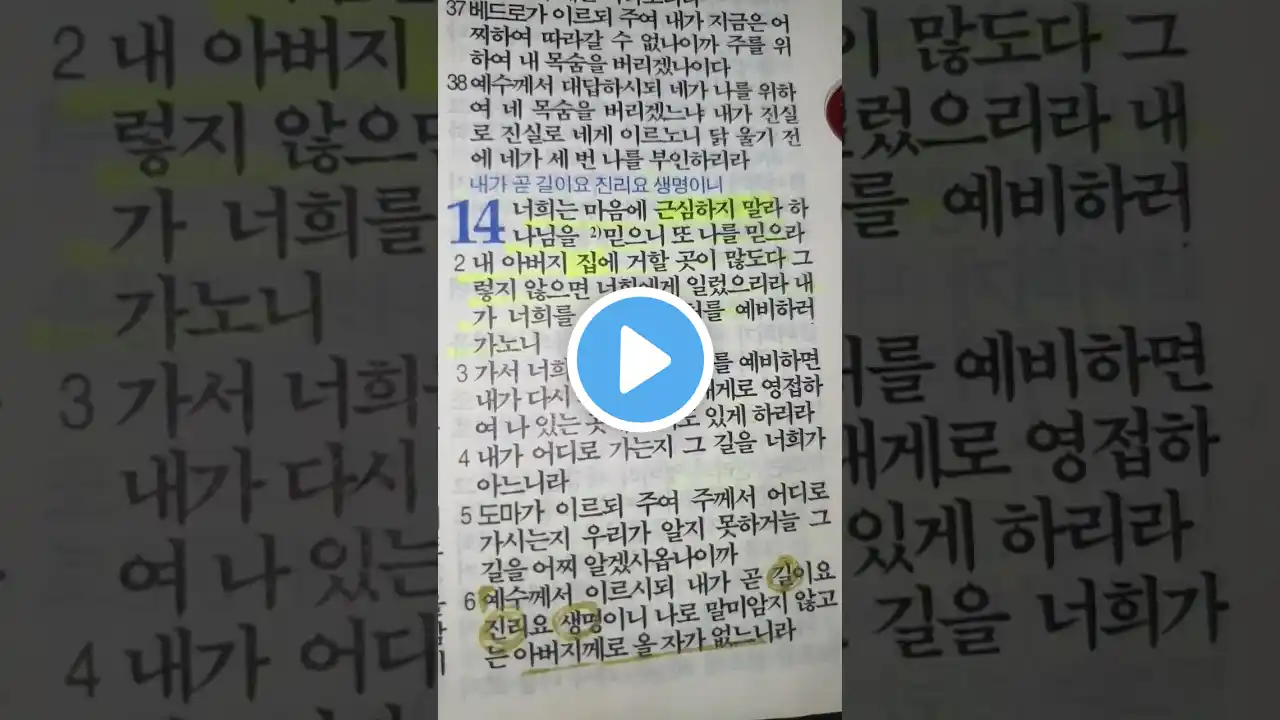 37 베드로가 이르되 주여 내가 지금은 어
찌하여 따라갈 수 없나이까 주를 위
하여 내 목숨을 버리겠나이다
38 예수께서 대답하시되 네가 나를 위하
여 네 목숨을 버리겠느냐 내가 진실
로 진실로 네게 이르노니 닭 울기 전
에 네가 세 번 나를 부인하리라
내가 곧 길이요 진리요 생명이니
14 너희는 마음에 근심하지 말라 하
나님을 2)믿으니 또 나를 믿으라
2 내 아버지 집에 거할 곳이 많도다 그
렇지 않으면 너희에게 일렀으리라 내
가 너희를 예비하러
가노니
3 가서 예비하면
내가 다시 영접하
여 나 있는 있게 하리라
4 내가 어디로 가는지 그 길을 너희가
아느니라
5 도마가 이르되 주여 주께서 어디로
가시는지 우리가 알지 못하거늘 그
길을 어찌 알겠사옵나이까
6 예수께서 이르시되 내가 곧 길이요
진리요 생명이니 나로 말미암지 않고
는 아버지께로 올 자가 없느니라
2 내 아버지
렇지 않으면
가 너희를
가노니
3 가서
내가 다시
여 나 있는
4 내가
많도다 그
내
예비하러
예비하면
영접하
있게 하리라
길을 너희가